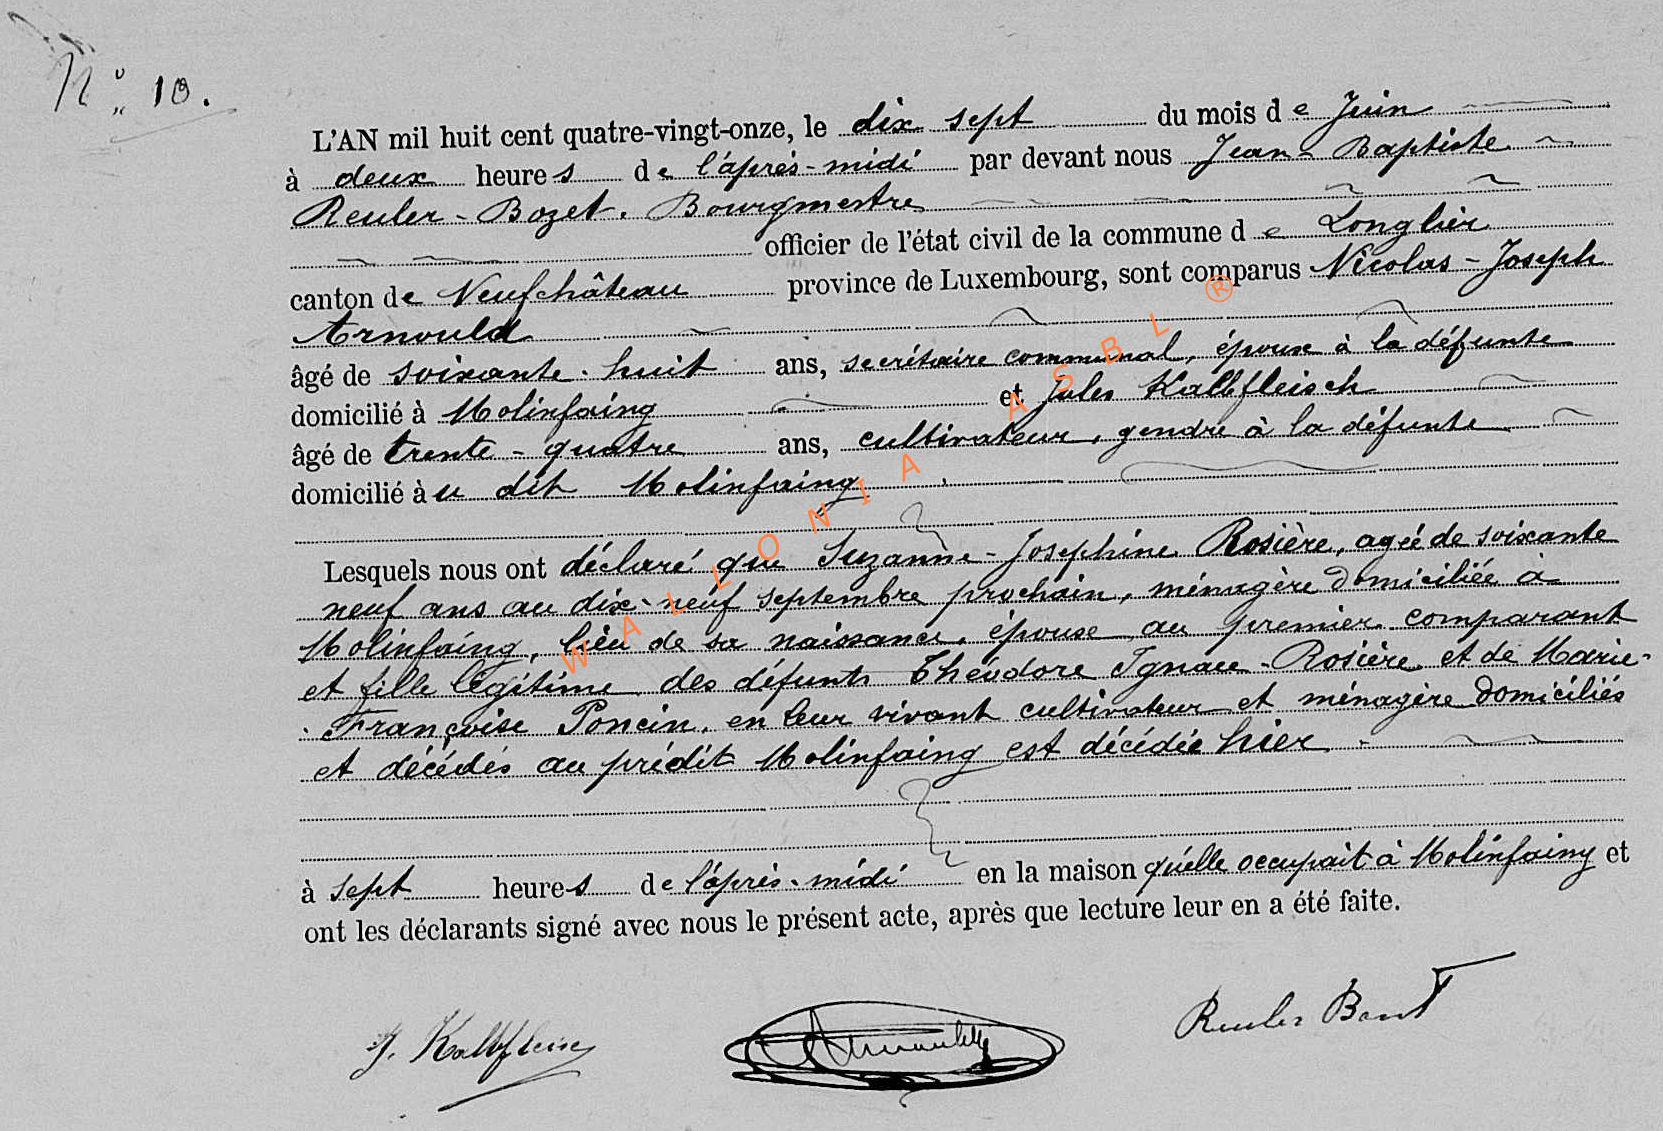 N° 10.
L'AN mil huit cent quatre-vingt-onze, le dix sept du mois de Juin
à deux heures de l'après-midi par devant nous Jean-Baptiste
Reuler-Bozet, Bourgmestre
officier de l'état civil de la commune de Longlier
canton de Neufchâteau province de Luxembourg, sont comparus Nicolas-Joseph
Arnould
âgé de soixante-huit ans, secrétaire communal, époux à la défunte
domicilié à Molinfaing et Jules Kalbfleisch
âgé de trente-quatre ans, cultivateur, gendre à la défunte
domicilié àu dit Molinfaing
Lesquels nous ont déclaré que Suzanne-Josephine Rosière, agée de soixante
neuf ans au dix-neuf septembre prochain, ménagère domiciliée à
Molinfaing, lieu de sa naissance, épouse au premier comparant
et fille légitime des défunts Théodore Ignace Rosière et de Marie-
Françoise Poncin, en leur vivant cultivateur et ménagère domiciliés
et décédés au prédit Molinfaing est décédée hier
à sept heures de l'après-midi en la maison qu'elle occupait à Molinfaing et
ont les déclarants signé avec nous le présent acte, après que lecture leur en a été faite.
J. Kalbfleisch Arnould Reuler Bozet
WALLONIA ASBL ®